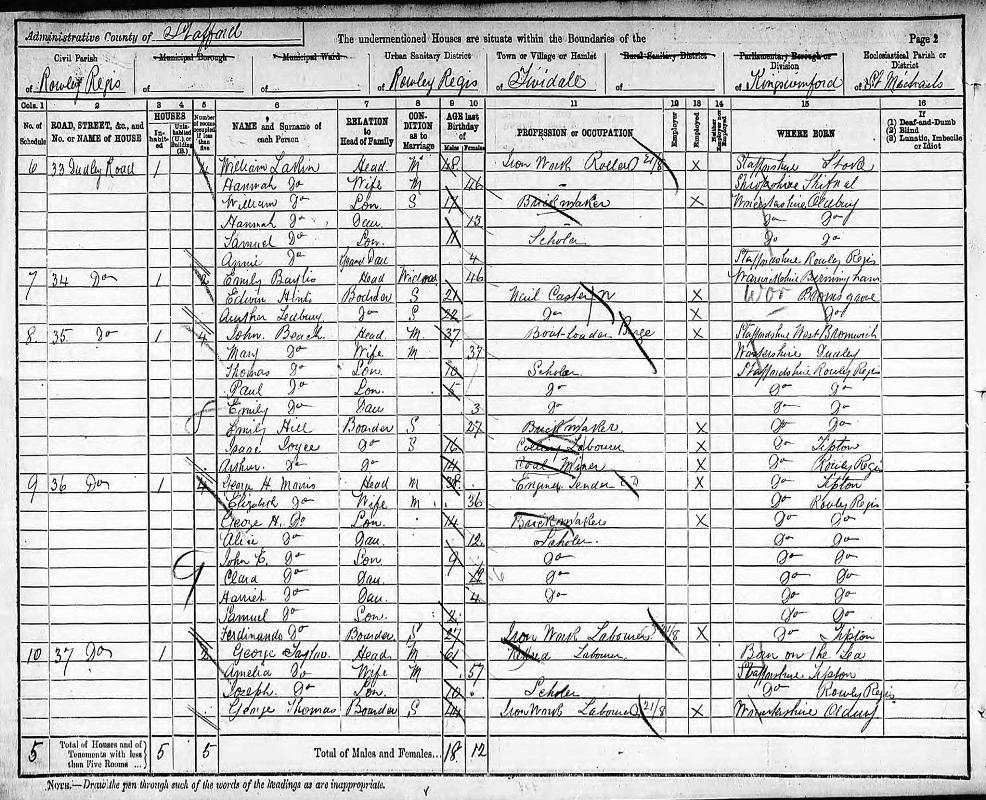 Administrative County of Stafford The undermentioned Houses are situate within the Boundaries of the Page 2
Civil Parish Municipal Borough Municipal Ward Urban Sanitary District Town or Village or Hamlet Rural Sanitary District Parliamentary Borough or Division Ecclesiastical Parish or District
of Rowley Regis of of of Rowley Regis of Tividale of of Kingswinford of St Michaels
Cols. 1 2 3 4 5 6 7 8 9 10 11 12 13 14 15 16
No. of Schedule ROAD, STREET, &c., and No. or NAME of HOUSE HOUSES Inhabited Uninhabited (U.) or Building (B.) Number of rooms occupied if less than five NAME and Surname of each Person RELATION to Head of Family CONDITION as to Marriage AGE last Birthday of Males Females PROFESSION or OCCUPATION Employer Employed Neither Employer nor Employed WHERE BORN If (1) Deaf-and-Dumb (2) Blind (3) Lunatic, Imbecile or Idiot
6 33 Dudley Road 1 4 William Lakin Head M 48 Iron Work Roller 21/8 X Staffordshire Stoke
Hannah Do Wife M 46 Shropshire Shifnal
William Do Son S 17 Brickmaker X Worcestershire Oldbury
Hannah Do Dau 13 Do Do
Samuel Do Son 11 Scholar Do Do
Annie Do Grand Dau 4 Staffordshire Rowley Regis
7 34 Do 1 2 Emily Baylis Head Widow 46 Birmingham
Edwin Boarder S 21 Nail Caster X Wor Bromsgrove
Arthur Ledbury Do S 22 Do X Do
8 35 Do 1 4 John Beach Head M 37 Boat-loader X Staffordshire West Bromwich
Mary Do Wife M 37 Dudley
Thomas Do Son 10 Scholar Staffordshire Rowley Regis
Paul Do Son 5 Do Do Do
Emily Do Dau 3 Do Do Do
Emily Hill Boarder S 27 Brickmaker X Do Do
Isaac Joyce Do S 16 Colliery Labourer X Do Tipton
Arthur Do Do 14 Coal Miner X Do Rowley Regis
9 36 Do 1 4 George H. Morris Head M 38 Engine Tender X Do Tipton
Elizabeth Do Wife M 36 Do Rowley Regis
George H. Do Son 14 Brickmaker X Do Do
Alice Do Dau 12 Scholar Do Do
John E. Do Son 9 Do Do Do
Clara Do Dau Do Do Do
Harriet Do Dau 4 Do Do Do
Samuel Do Son 2 Do Do
Ferdinando Do Boarder S 27 Iron Work Labourer 21/8 X Do Tipton
10 37 Do 1 2 George Taylor Head M 61 Retired Labourer Born on the Sea
Amelia Do Wife M 57 Staffordshire Tipton
Joseph Do Son 10 Scholar Do Rowley Regis
George Thomas Boarder S 44 Iron Work Labourer 21/8 X Worcestershire Oldbury
5 Total of Houses and of Tenements with less than Five Rooms ... 5 5 Total of Males and Females... 18 12
NOTE.—Draw the pen through such of the words of the headings as are inappropriate.